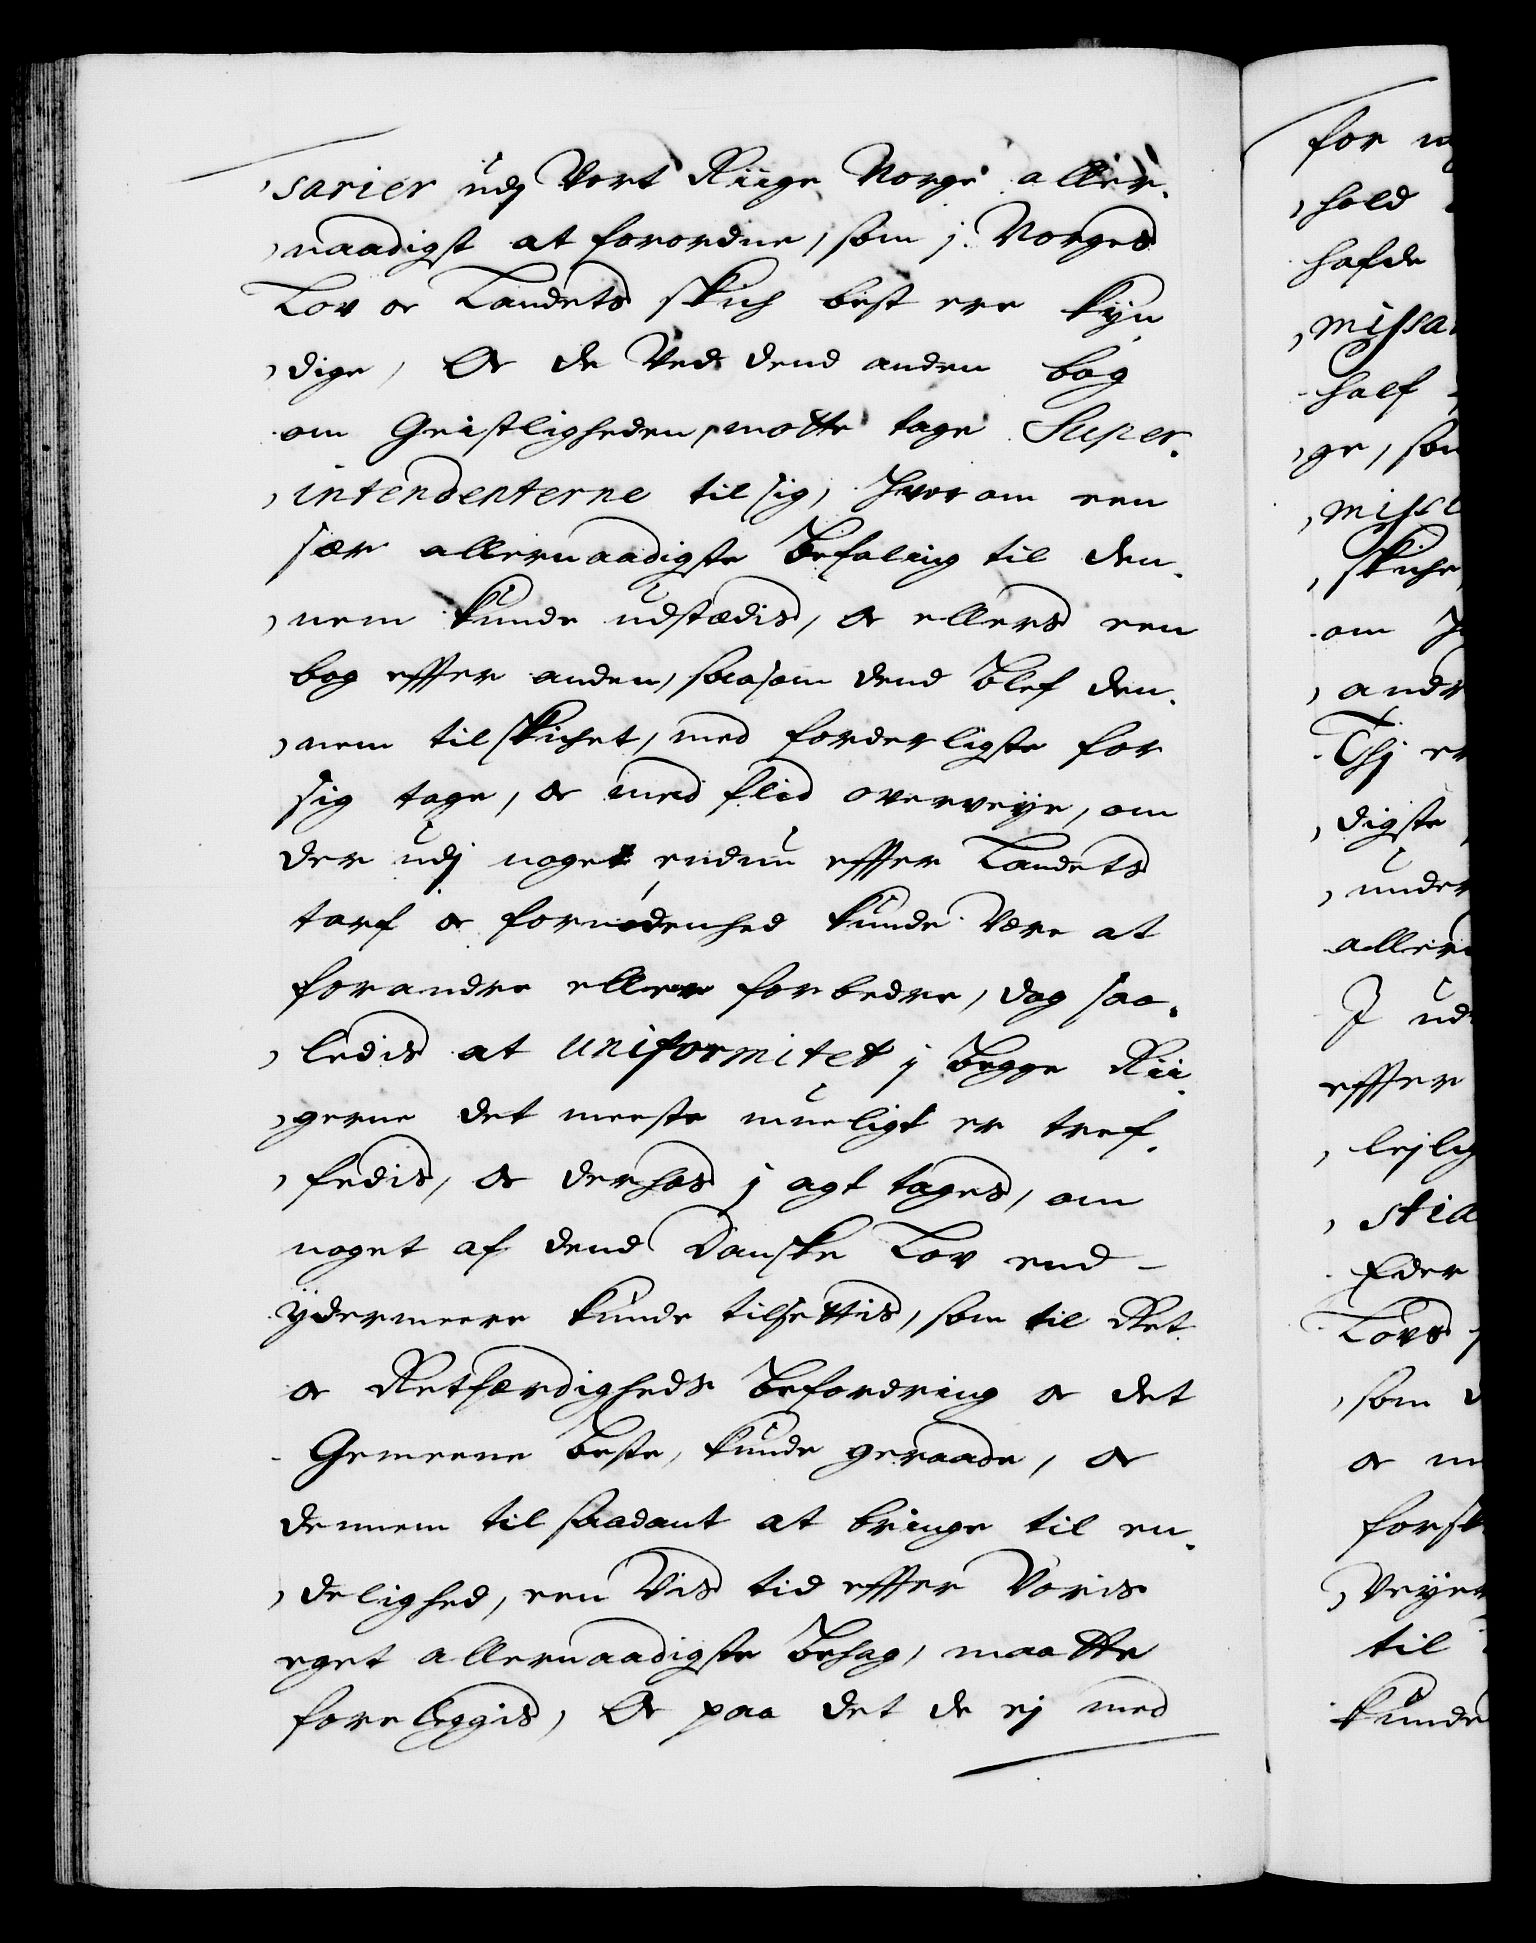 sarier udj Vort Riige Norge aller-
naadigst at forordne, som j Norges
Lov oc Landets skich best ere kyn
dige, Oc de Ved dend anden bog
om Geistligheden, motte tage Super-
intendenterne til sig, hvor om een
sær allernaadigste Befaling til den-
nem kunde udstædis, oc ellers een
bog effter anden, saasom dend blef den-
nem tilskichet, med forderligste for
sig tage, oc med flid overveye, om
der udj noget endnu effter Landets
tarf oc fornødenhed kunde Være at
forandre eller forbedre, dog saa-
ledis at uniformitet j begge Rii-
gerne det meeste mueligt er tref-
fedis, oc derhos j agt tages, om
noget af dend Danske Lov end-
ydermeere kunde tilsettis, som til Ret
oc Retfærdigheds befordring oc det
Gemeene beste, kunde geraade, oc
dennem til saadant at bringe til en-
delighed, een Vis tid effter Voris
eget allernaadigste behag, maatte
foreleggis, Oc paa det de ej med
for
hold
hafde
missa
half
ge, som
miss
skiche
om
andr
Thj er
digste
under
allern
J ud
effter
lejlig
stia
Eder
Lovs
som
oc
forsk
Veyer
til
kunde